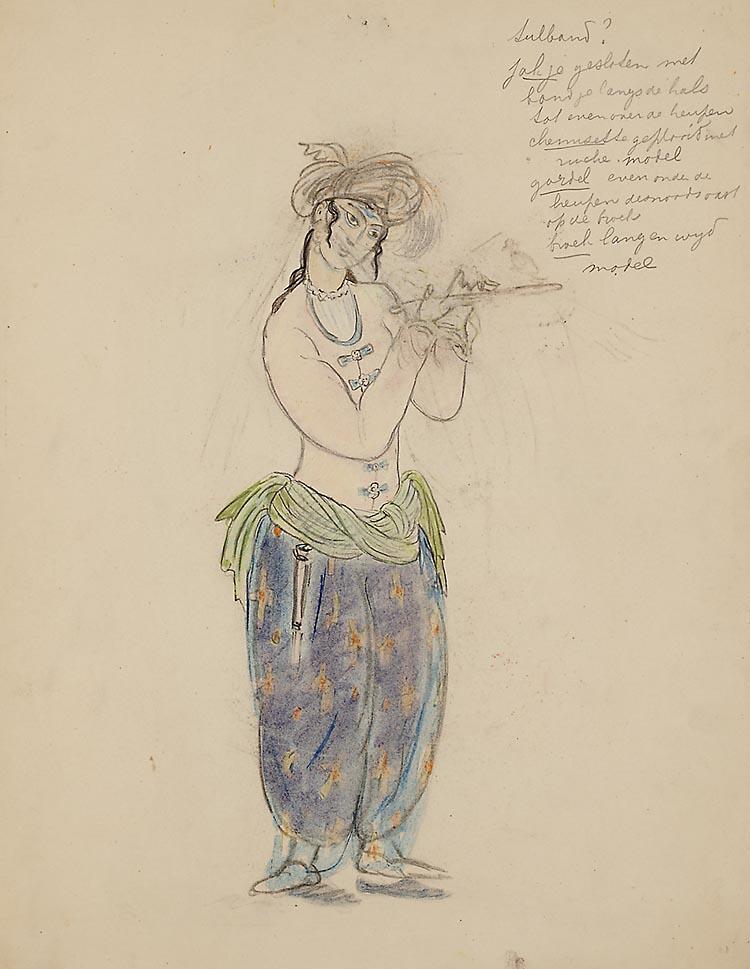 tulband?
jakje gesloten met
bandje langs de hals
tot even over de heupen
chemisette geplooid met
ruche model
gordel even onder de
heupen desnoods vast
op de broek
broek lang en wyd
model